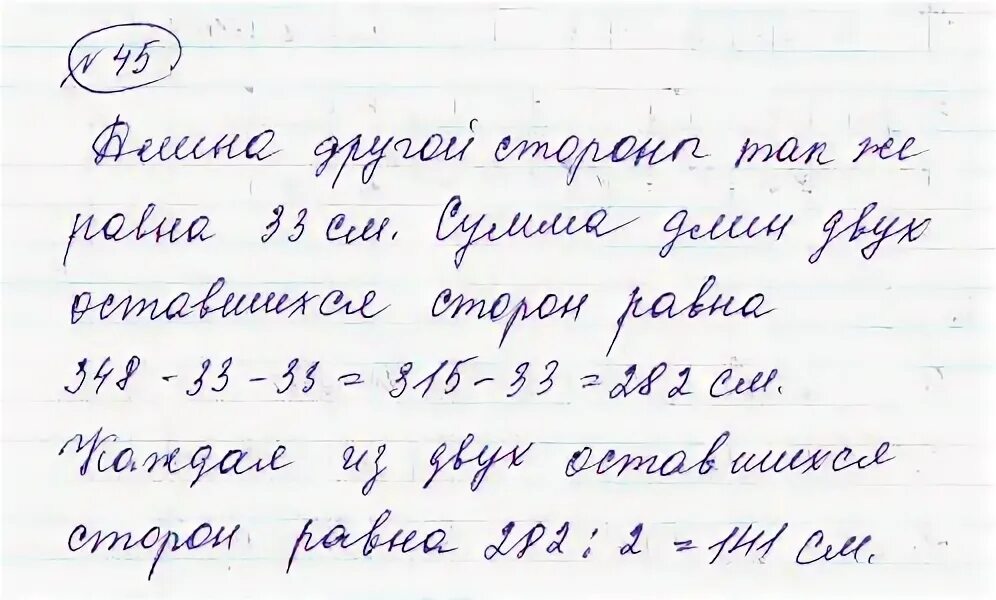 № 45
Длина другой стороны так же
равна 33 см. Сумма длин двух
оставшихся сторон равна
348 - 33 - 33 = 315 - 33 = 282 см.
Каждая из двух оставшихся
сторон равна 282 : 2 = 141 см.